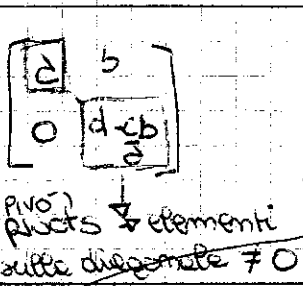 a b
0 d-cb/a
pivò?
pivots elementi
sulla diagonale ≠ 0